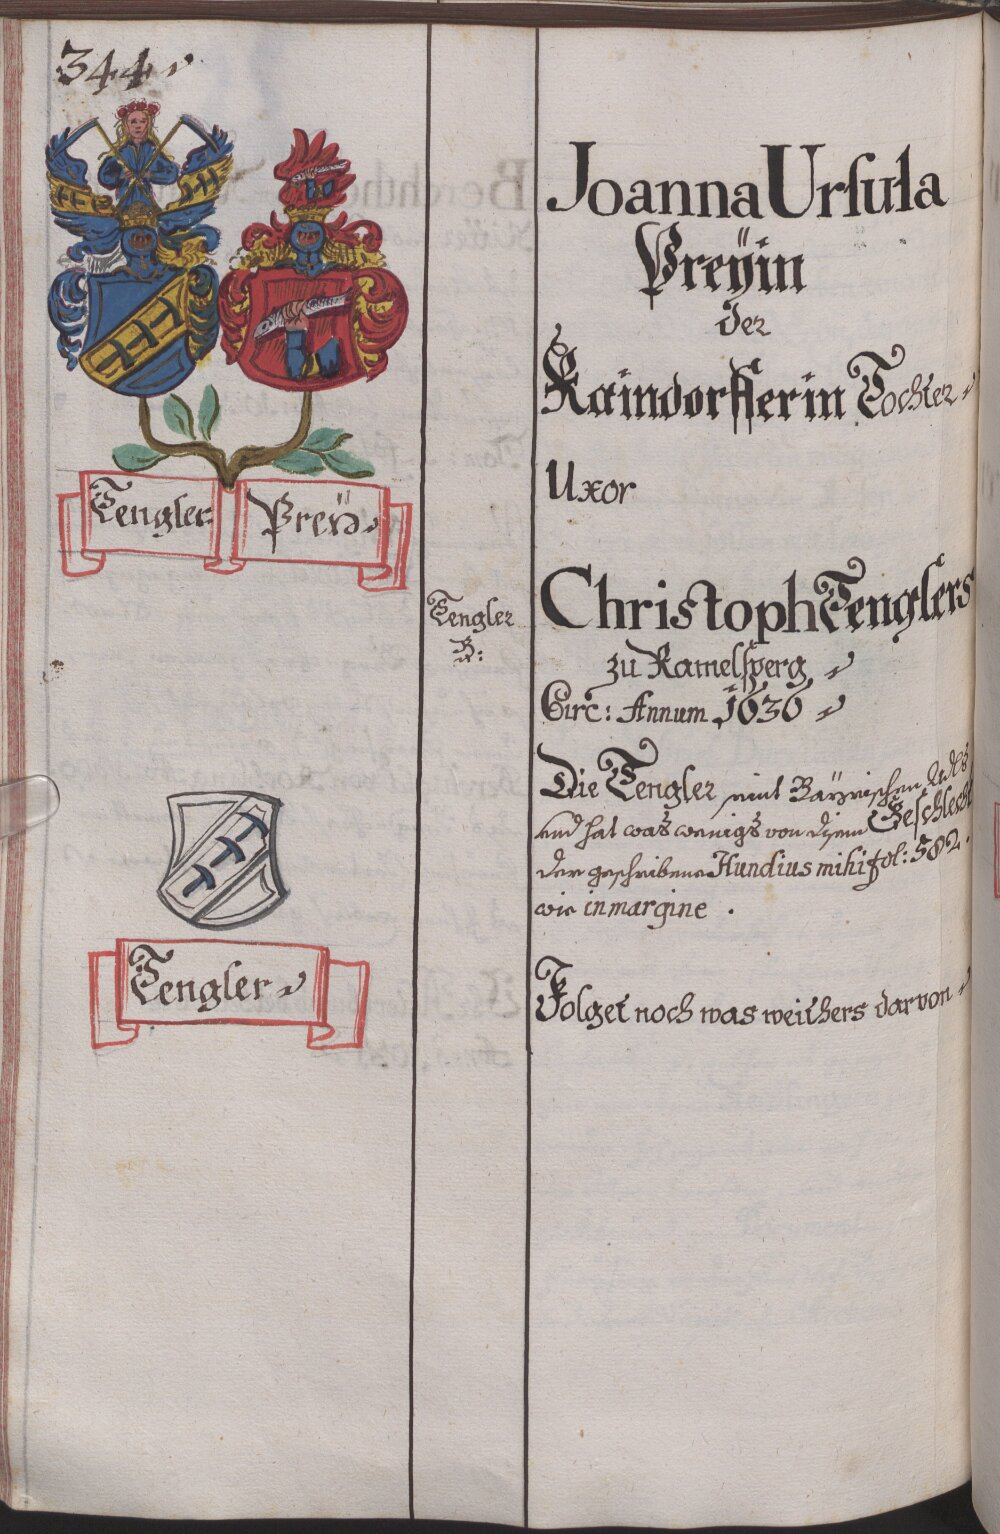 344
Joanna Ursula
Preÿin
der
Raindorfferin Tochter
Uxor
Tengler
Preÿ
Christoph Tenglers
zu Ramelsperg
Circ: Annum 1636
Tengler
B:
Die Tengler seint Bayrischen Adls
und hat was wenigs von disem Geschlecht
der geschribene Hundius mihi fol: 582.
wie in margine.
Tengler
Folget noch was weithers darvon